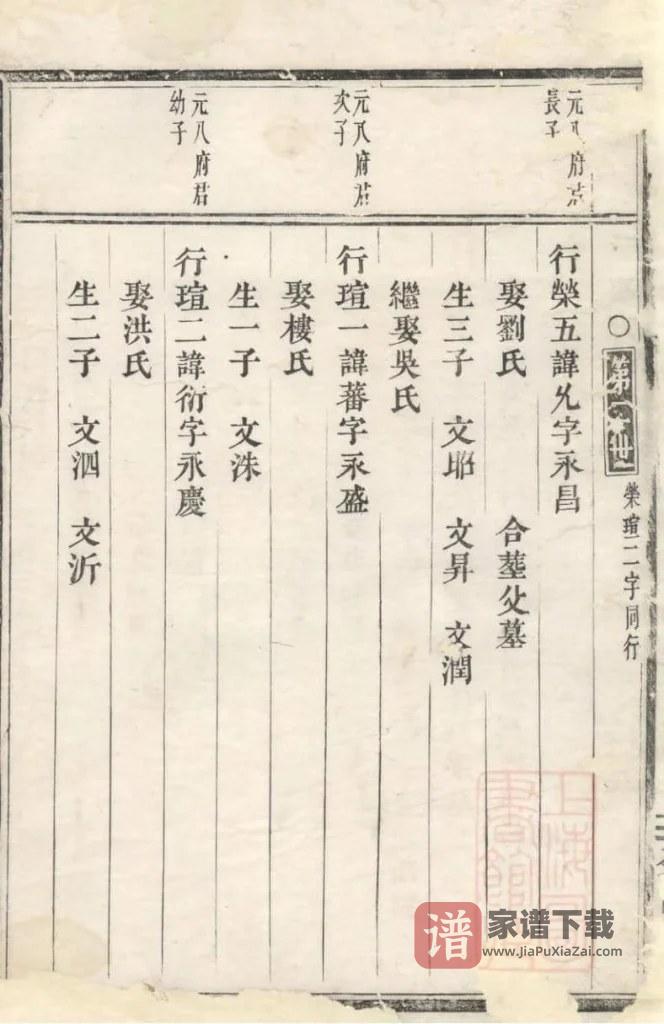 ○
第一世
榮瑄二字同行
元八府君
長子
行榮五諱允字永昌
娶劉氏 合塟父墓
生三子 文昭 文昇 文潤
繼娶吳氏
元八府君
次子
行瑄一諱蕃字永盛
娶樓氏
生一子 文洙
元八府君
幼子
行瑄二諱衍字永慶
娶洪氏
生二子 文泗 文沂
上海圖書館藏
谱 家谱下载
www.JiaPuXiaZai.com